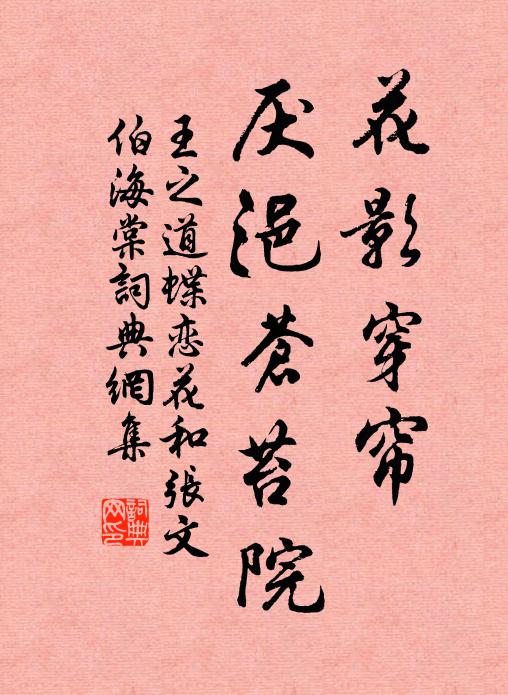 花影穿帘
厌浥苍苔院
王之道蝶恋花和張文
伯海棠詞典網集
詞典网印